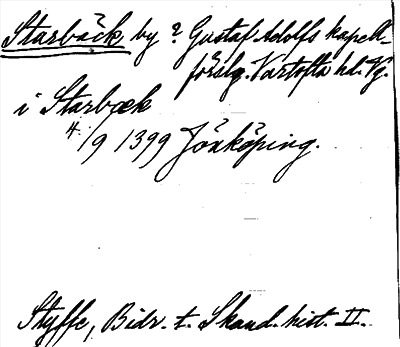 Starbäck by? Gustaf Adolfs kapell-
förslg. Vartofta hd. Vg.
i Starbæk
4/9 1399 Jönköping.
Styffe, Bidr. t. Skand. hist. II.